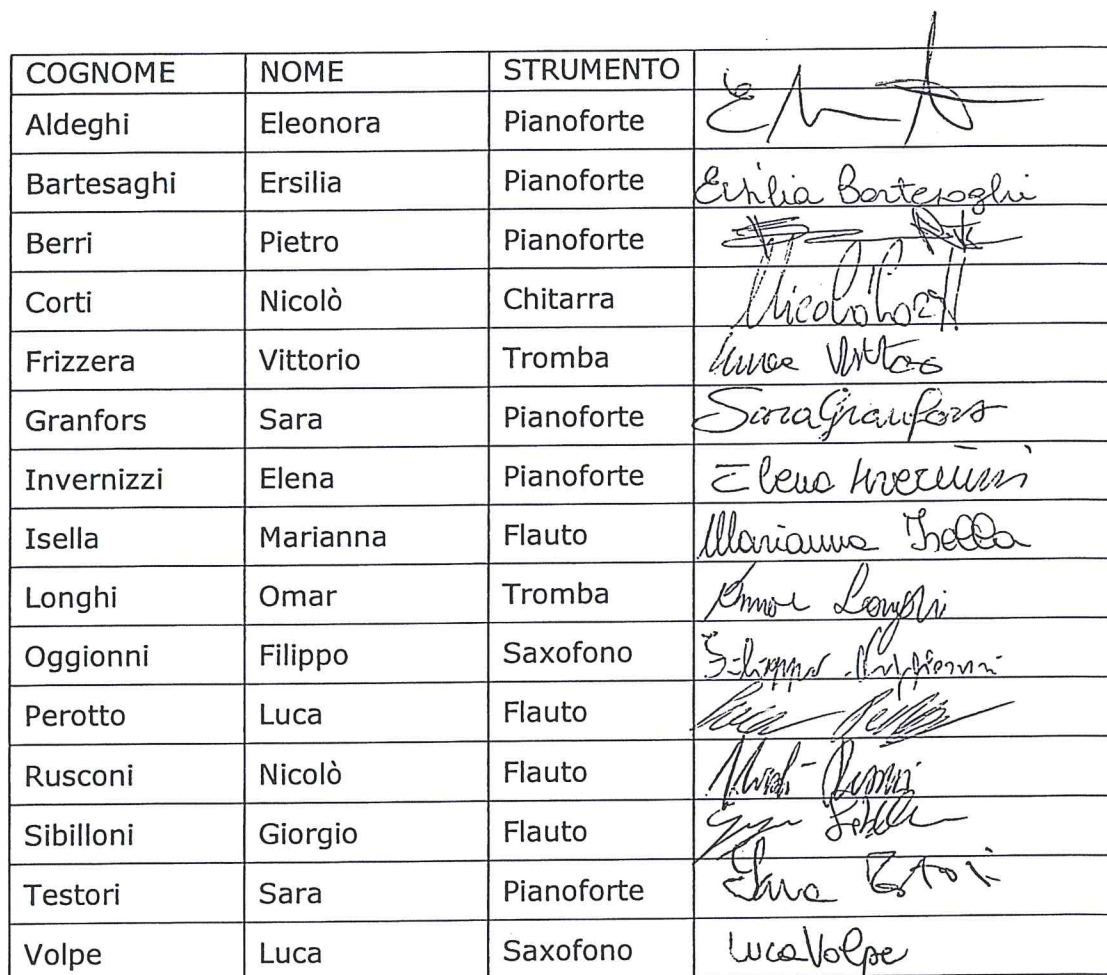 COGNOME NOME STRUMENTO
Aldeghi Eleonora Pianoforte
Bartesaghi Ersilia Pianoforte Ersilia Bartesaghi
Berri Pietro Pianoforte
Corti Nicolò Chitarra Nicolò Corti
Frizzera Vittorio Tromba
Granfors Sara Pianoforte Sara Granfors
Invernizzi Elena Pianoforte Elena Invernizzi
Isella Marianna Flauto Marianna Isella
Longhi Omar Tromba Omar Longhi
Oggionni Filippo Saxofono Filippo Oggionni
Perotto Luca Flauto Luca
Rusconi Nicolò Flauto
Sibilloni Giorgio Flauto
Testori Sara Pianoforte Sara Testori
Volpe Luca Saxofono Luca Volpe